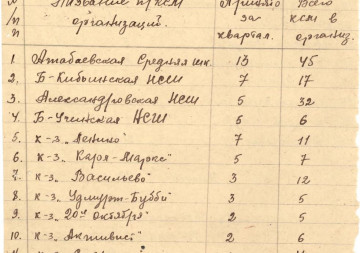 № Название пр.ксм Принято Всего
п/п организаций. за квартал. ксм в организ.
1 Атабаевская Средняя шк. 13 45
2 Б-Кибьинская НСШ 7 17
3. Александровская НСШ 5 32
4 Б-Учинская НСШ 6 6
5. к-з „Ленино" 7 11
6. к-з „Карл-Маркс" 5 7
7. к-з „Васильево" 3 12
8. к-з „Удмурт-Бубби" 3 5
9. к-з „20 лет Октября" 2 5
10. к-з „Активист" 2 6